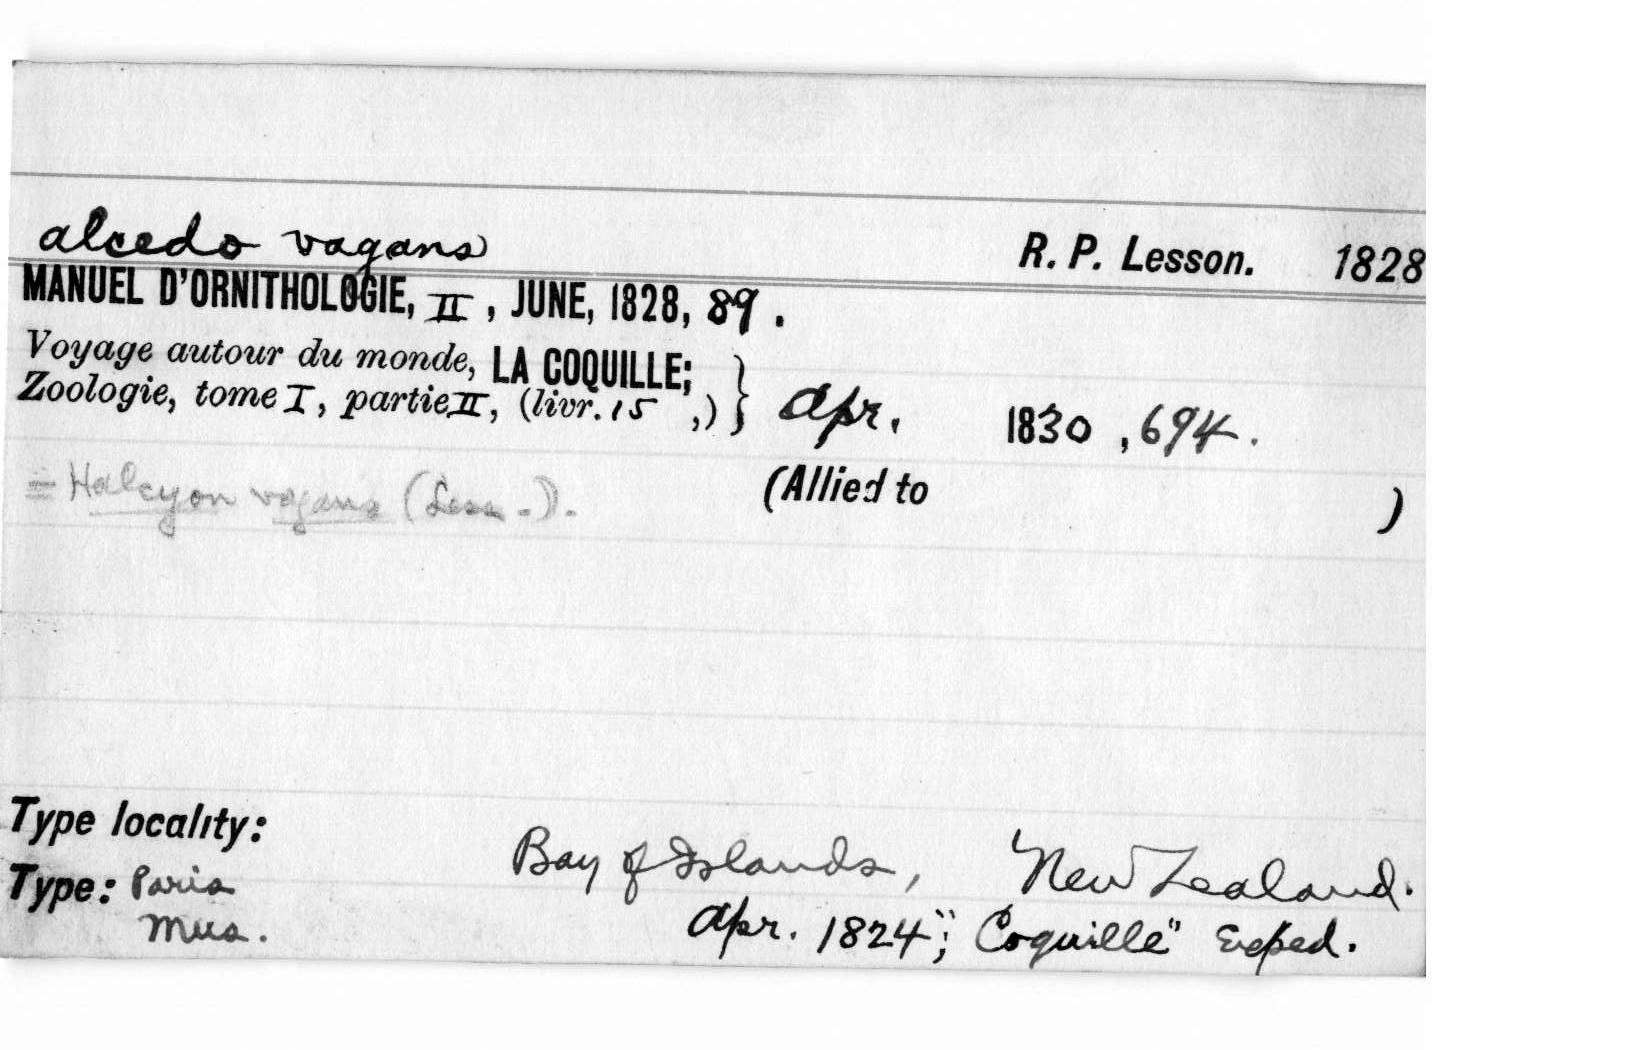 alcedo vagans R. P. Lesson. 1828
MANUEL D'ORNITHOLOGIE, II, JUNE, 1828, 89.
Voyage autour du monde, LA COQUILLE;
Zoologie, tome I, partie II, (livr. 15 ,) } Apr. 1830, 694.
= Halcyon vagans (Less.). (Allied to )
Type locality:
Bay of Islands, New Zealand.
Type: Paris
Mus. Apr. 1824; "Coquille" Exped.